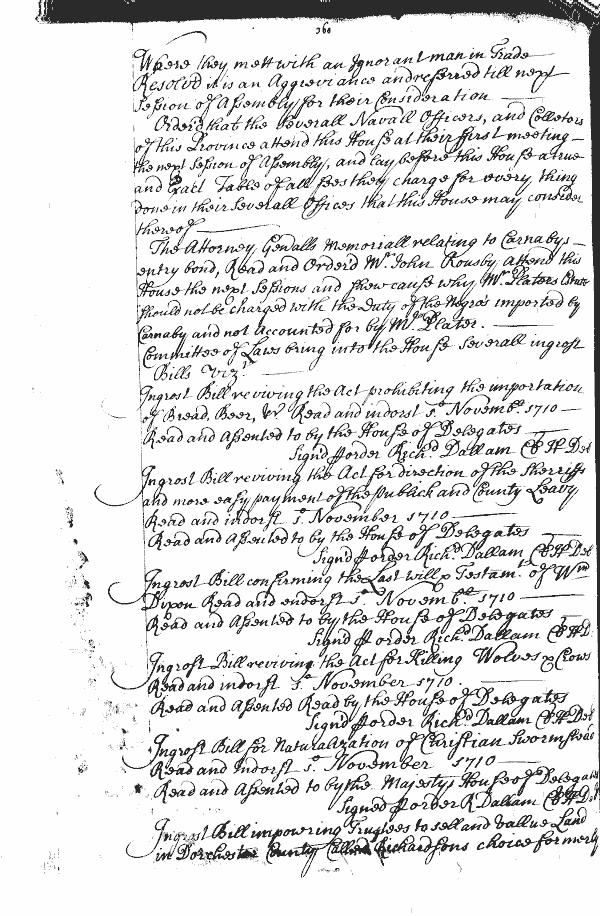 360
Where they mett with an Ignorant man in Trade
Resolvd it is an Aggreviance and referred till next
Session of Assembly for their Consideration
Orderd that the severall Navall Officers, and Colletors
of this Province attend this House at their first meeting
the next Session of Assembly, and lay before this House a true
and Exact Table of all fees they charge for every thing
done in their severall Offices that this House may consider
thereof
The Attorney Gen'alls Memoriall relating to Carnabys
entry bond, Read and Orderd Mr. John Rousby attend this
House the next Sessions and shew cause why Mr. Platers Estate
should not be charged with the Duty of the Negro's imported by
Carnaby and not Accounted for by Mr. Plater.
Committee of Laws bring into the House severall ingrost
Bills Vizt.
Ingrost Bill reviving the Act prohibiting the importation
of Bread, Beer, &c Read and indorst 3d. Novembr. 1710
Read and Assented to by the House of Delegates
Signd p order Richd. Dallam Cl H Del
Ingrost Bill reviving the Act for direction of the Sherriffs
and more easy payment of the Publick and County Leavy
Read and indorst 3d. November 1710
Read and Assented to by the House of Delegates
Signd p order Richd. Dallam Cl H Del
Ingrost Bill confirming the Last will & Testamt. of Wm
Dixon Read and endorst 3d. Novembr. 1710
Read and Assented to by the House of Delegates
Signd p order Richd. Dallam Cl H D
Ingrost Bill reviving the Act for Killing Wolves & Crows
Read and indorst 3d. November 1710.
Read and Assented Read by the House of Delegates
Signd p order Richd. Dallam Cl H Del
Ingrost Bill for Naturalization of Christian
Read and Indorst 3d. November 1710
Read and Assented to by the Majestys House of Delegates
Signed p order R Dallam Cl H Del
Ingrost Bill impowering Trustees to sell and vallue Land
in Dorchester County Called Richardsons choice formerly